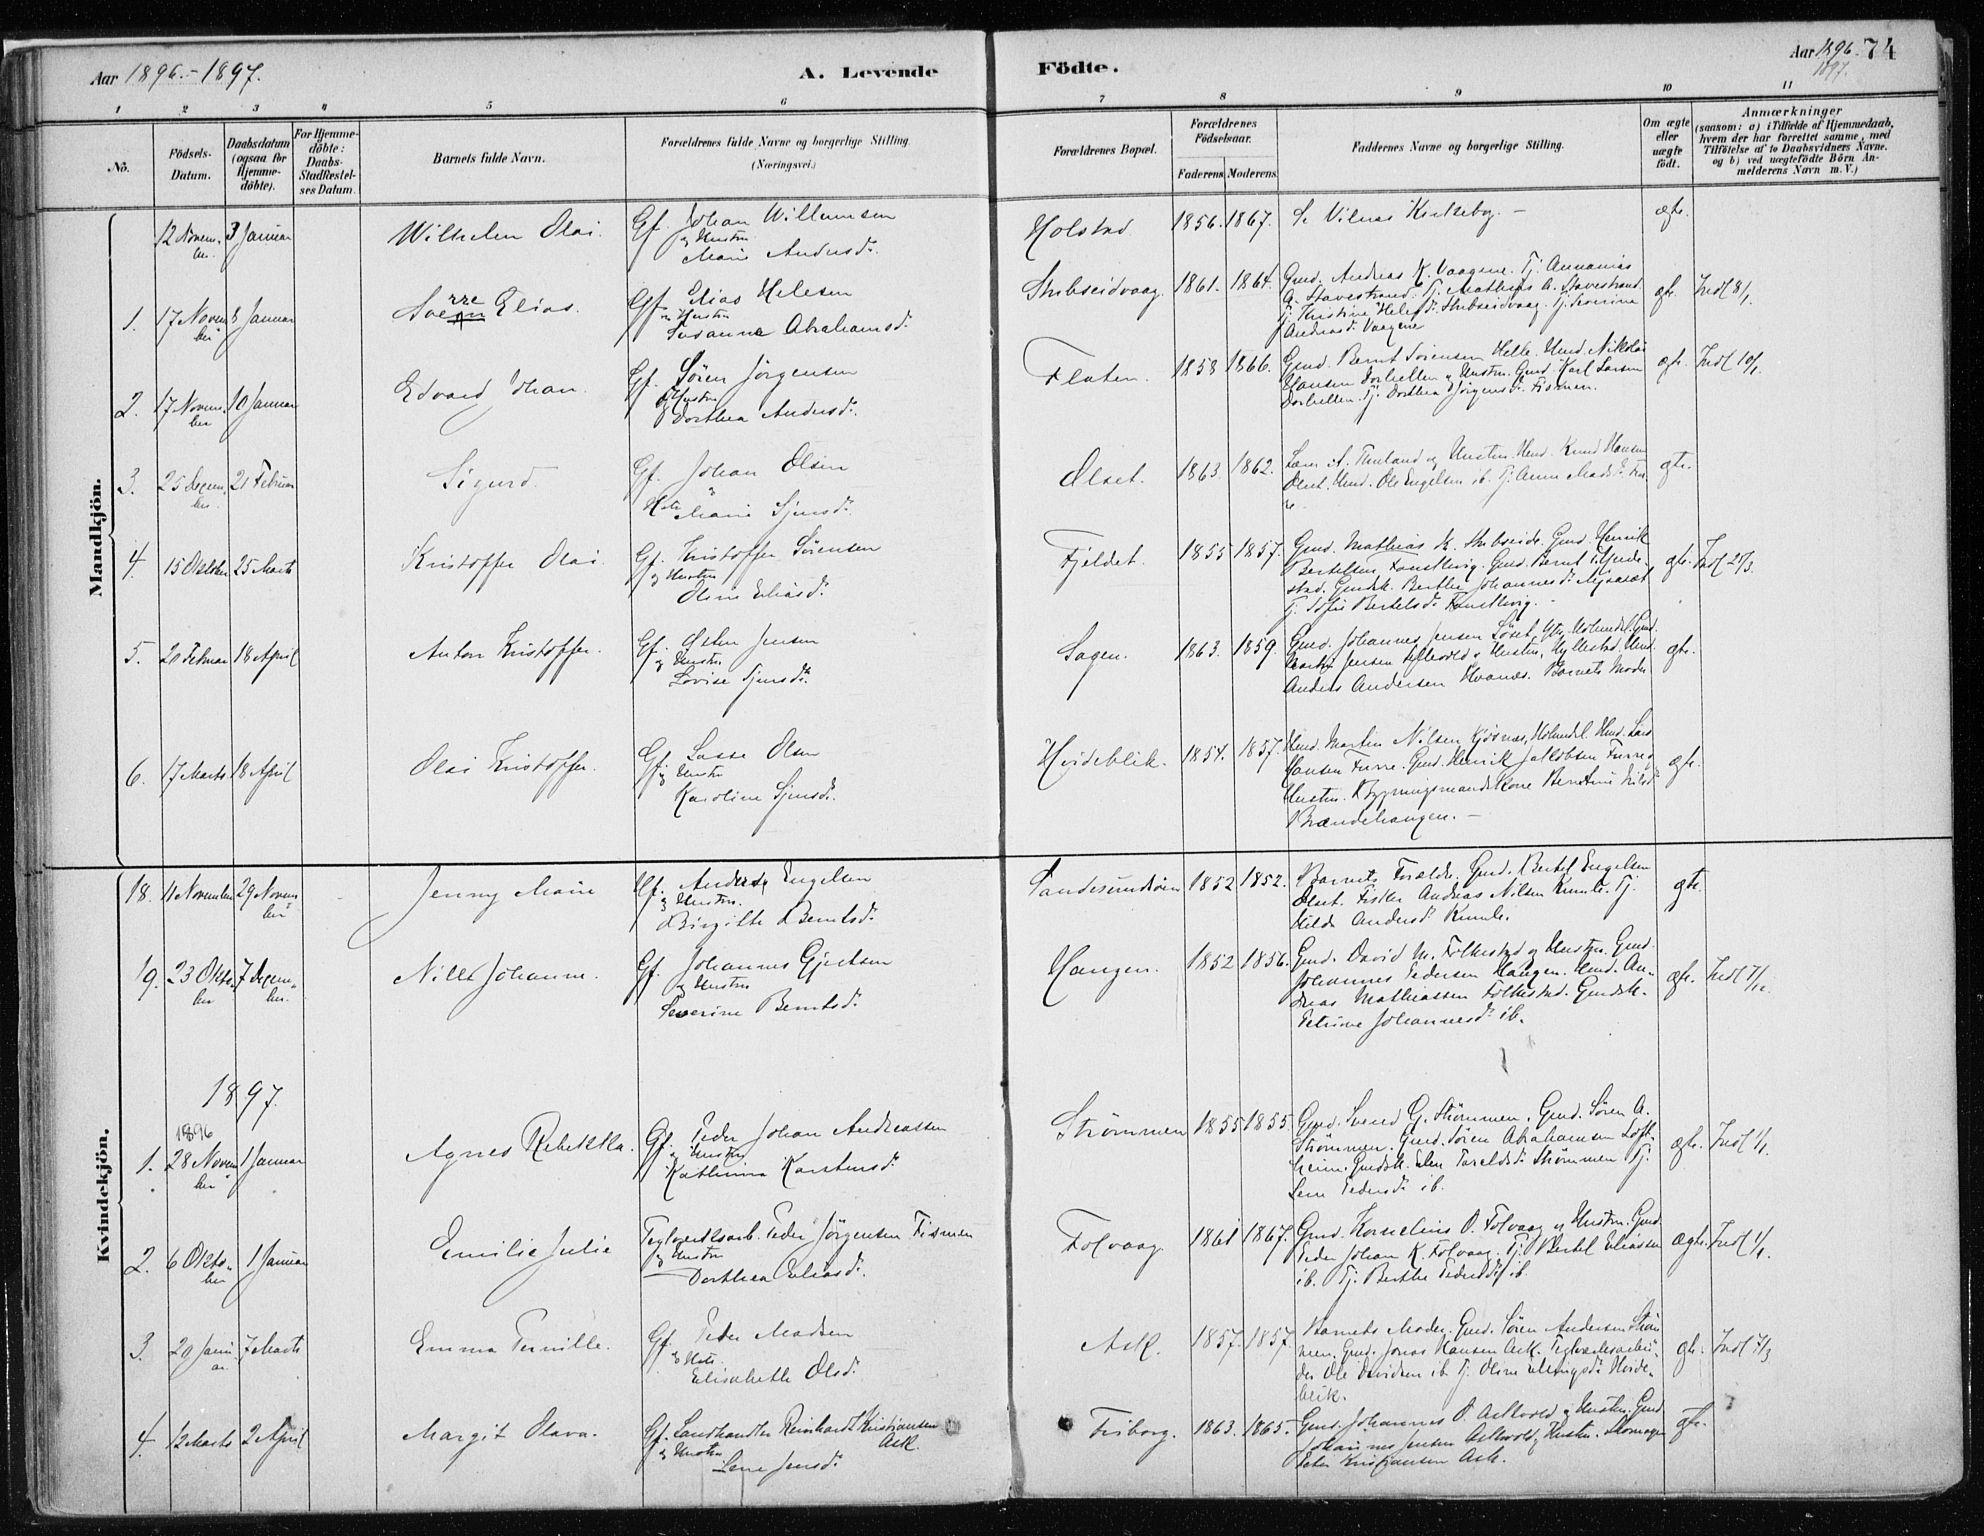 Aar 1896.-1897.
A. Levende
Födte.
Aar 1896. 74
1897.
1 2 3 4 5 6 7 8 9 10 11
No.
Födsels-
Datum.
Daabsdatum
(ogsaa for
Hjemme-
döbte).
For Hjemme-
döbte:
Daabs-
Stadfæstel-
ses Datum.
Barnets fulde Navn.
Forældrenes fulde Navne og borgerlige Stilling.
(Næringsvei.)
Forældrenes Bopæl.
Forældrenes
Födselsaar.
Faderens. Moderens.
Faddernes Navne og borgerlige Stilling.
Om ægte
eller
uægte
født.
Anmærkninger
(saasom: a) i Tilfælde af Hjemmedaab,
hvem der har forrettet samme, med
Tilföielse af to Daabsvidners Navne.
og b) ved uægtefödte Börn An-
melderens Navn m. V.)
Mandkjön.
12 Novem-
ber.
3 Januar
Wilhelm Olai.
Gf. Johan Willumsen
og Hustru
Marie Andersd.
Holstad
1856. 1867.
Se Vilnes Kirkebog. -
ægte.
1. 17 Novem
ber
3 Januar
Elias.
Gf. Elias Helesen
og Hustru
Susanne Abrahamsd.
Skibseidvaag.
1861. 1864.
Gmd. Andreas K. Vaagene. Tj. Annanias
A. Stavestrand. Tj. Mathias A. Stavestrand.
Tj. Kristine Helesd. Skibseidvaag. Tj. Severine
Andreasd. Vaagene
gt. Indl 3/1.
2. 17 Novem-
ber
10 Januar
Edvard Johan.
Gf. Søren Jørgensen
og Hustru
Dorthea Andersd.
Flaten.
1858 1866.
Gmd. Bernt Sørensen Helle. Umd. Nikolai
Hansen og Hustru. Gmd. Karl Larsen
Tj. Dorthea Jørgensd.
gt. Indl 10/1.
3. 25 Decem-
ber
21 Februar
Sigurd.
Gf. Johan Olsen
Hustru
Marie Sjursd.
Olset.
1863. 1862.
og Hustru. Umd. Knud Hansen
Olset. Umd. Ole Engelsen ib. Tj. Anne Madsd.
gte.
4. 15 Oktober 25 Marts
Kristoffer Olai.
Gf. Kristoffer Sørensen
og Hustru
Oline Eliasd.
Fjeldet.
1855 1857.
Gmd. Mathias K. Skibseide. Gmd. Henrik
Bertelsen Gmd. Bernt
Gmdsk. Berthe Johannesd.
Tj. Sofie Bertelsd.
gte. Indl 25/3.
5. 20 Februar 18 April
Anton Kristoffer.
Gf. Østen Jensen
og Hustru
Lovise Sjursd.
Sagen.
1863. 1859.
Gmd. Johannes Jensen Løset, Ytre Holmedal. Gmd.
Jensen og Hustru, Hyllestad, Umd.
Anders Andersen Hvanæs. Barnets Moder
gte.
6. 17 Marts 18 April
Olai Kristoffer.
Gf. Lasse Olsen
og Hustru
Karoline Sjursd.
Hvideblik.
1854. 1857.
Umd. Martin Nilsen Holmedal. Umd. Lars
Hansen Furre. Gmd. Henrik Jakobsen Furre og
Hustru. Bygningsmandskone Berntine Nilsd
Brændehaugen. -
gt.
Kvindekjön.
18. 11 November 29 Novem
ber
Jenny Marie
Hf. Anders Engelsen
og Hustru.
Birgitte Berntsd.
1852 1852.
Barnets Forældr. Gmd. Bertel Engelsen
Olset. Fisker Andreas Nilsen Tj.
Hilda Andersd.
gt.
19. 23 Okto-
ber
7 Decem-
ber.
Nille Johanne.
Gf. Johannes Gjertsen
og Hustru
Severine Berntsd.
Haugen.
1852 1856.
Gmd. David M. Folkestad og Hustru. Gmd.
Johannes Pedersen Haugen. Umd. An-
dreas Mathiassen Folkestad. Gmdsk.
Petrine Johannesd. ib.
gt. Indl 7/12.
1897.
1896
1. 28 Novem
ber
1 Januar
Agnes Rebekka.
Gf. Peder Johan Andreassen
og Hustru
Kathrina Karstensd.
Strømmen
1855 1855.
Gmd. Svend G. Strømmen. Gmd. Søren A.
Strømmen. Gmd. Søren Abrahamsen Loft-
heim. Gmdsk. Elen Strømmen Tj.
Lene Pedersd. ib.
ægt. Indl 1/1.
2. 6 Okto-
ber
1 Januar
Emilie Julie
Teglverksarb. Peder Jørgensen
og Hustru
Dorthea Eliasd.
Folvaag.
1861 1867.
Gmd. Kornelius O. Folvaag og Hustru. Gmd.
Peder Johan K. Folvaag. Tj. Bertel Eliassen
ib. Tj. Berthe Pedersd. ib.
ægte. Indl 1/1.
3. 29 Janu
ar
7 Marts
Emma Pernille.
Gf. Peder Madsen
og Hustru
Elisabeth Olsd.
Ask.
1857. 1857.
Barnets Moder. Gmd. Søren Andersen Strøm
men. Gmd. Jonas Hansen Ask. Teglverksarbei-
der Ole Davidsen ib. Tj. Oline Ellingsd. Hvide-
blik.
gte. Indl 7/3
4. 12 Marts 2 April
Margit Olava.
Gf. Landhandler Reinhardt Kristjansen
Ask.
og Hustru
Lene Jensd.
Friborg.
1863. 1865.
Gmd. Johannes O. Askvold og Hustru. Gmd
Johannes Jensen Askvold og Hustru. Skomager
Peter Kristjansen Ask.
gte.